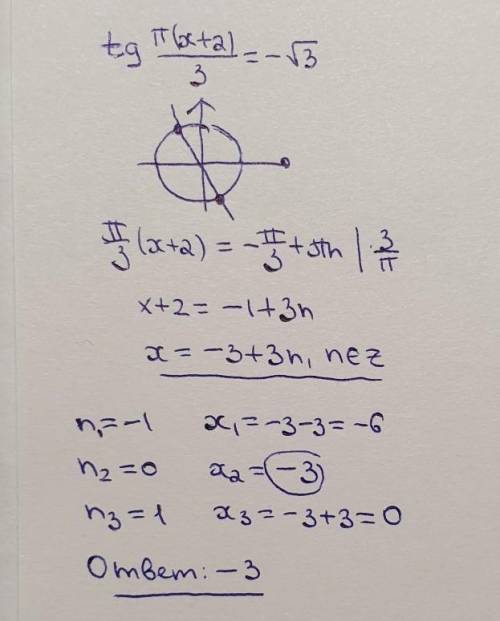 tg π(x+2)/3 = -√3
π/3 (x+2) = -π/3 + πn | · 3/π
x+2 = -1+3n
x = -3+3n, n∈z
n₁=-1 x₁=-3-3=-6
n₂=0 x₂=-3
n₃=1 x₃=-3+3=0
Ответ: -3